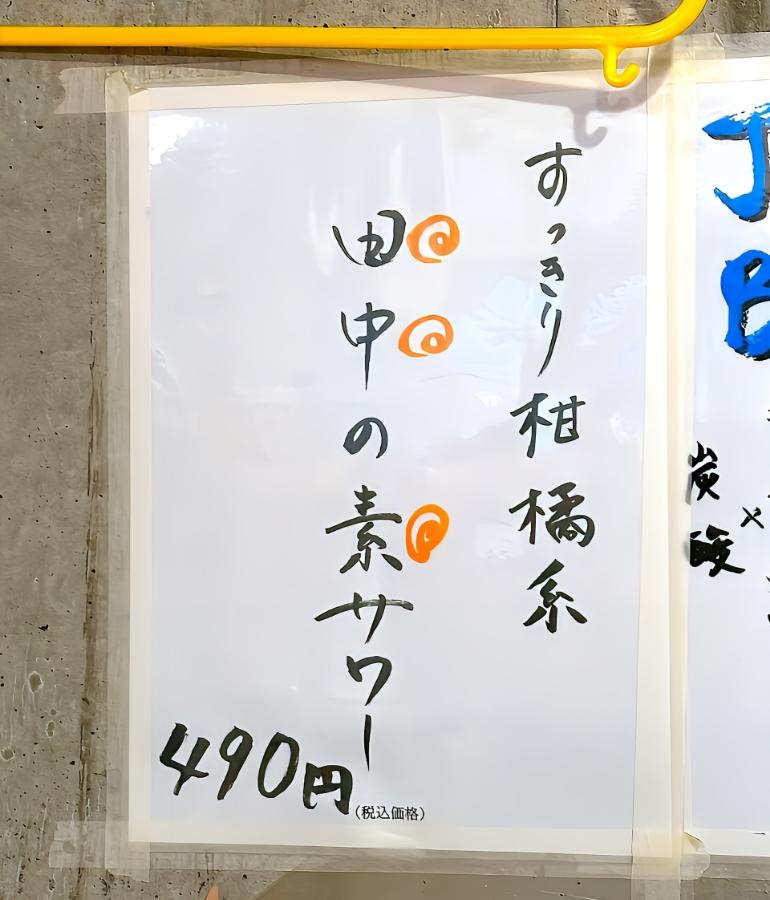 すっきり柑橘系
田中の素サワー
490円
(税込価格)
J
B
炭酸
×